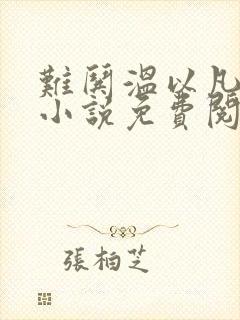 難鬨溫以凡
小說免費閱
張柏芝